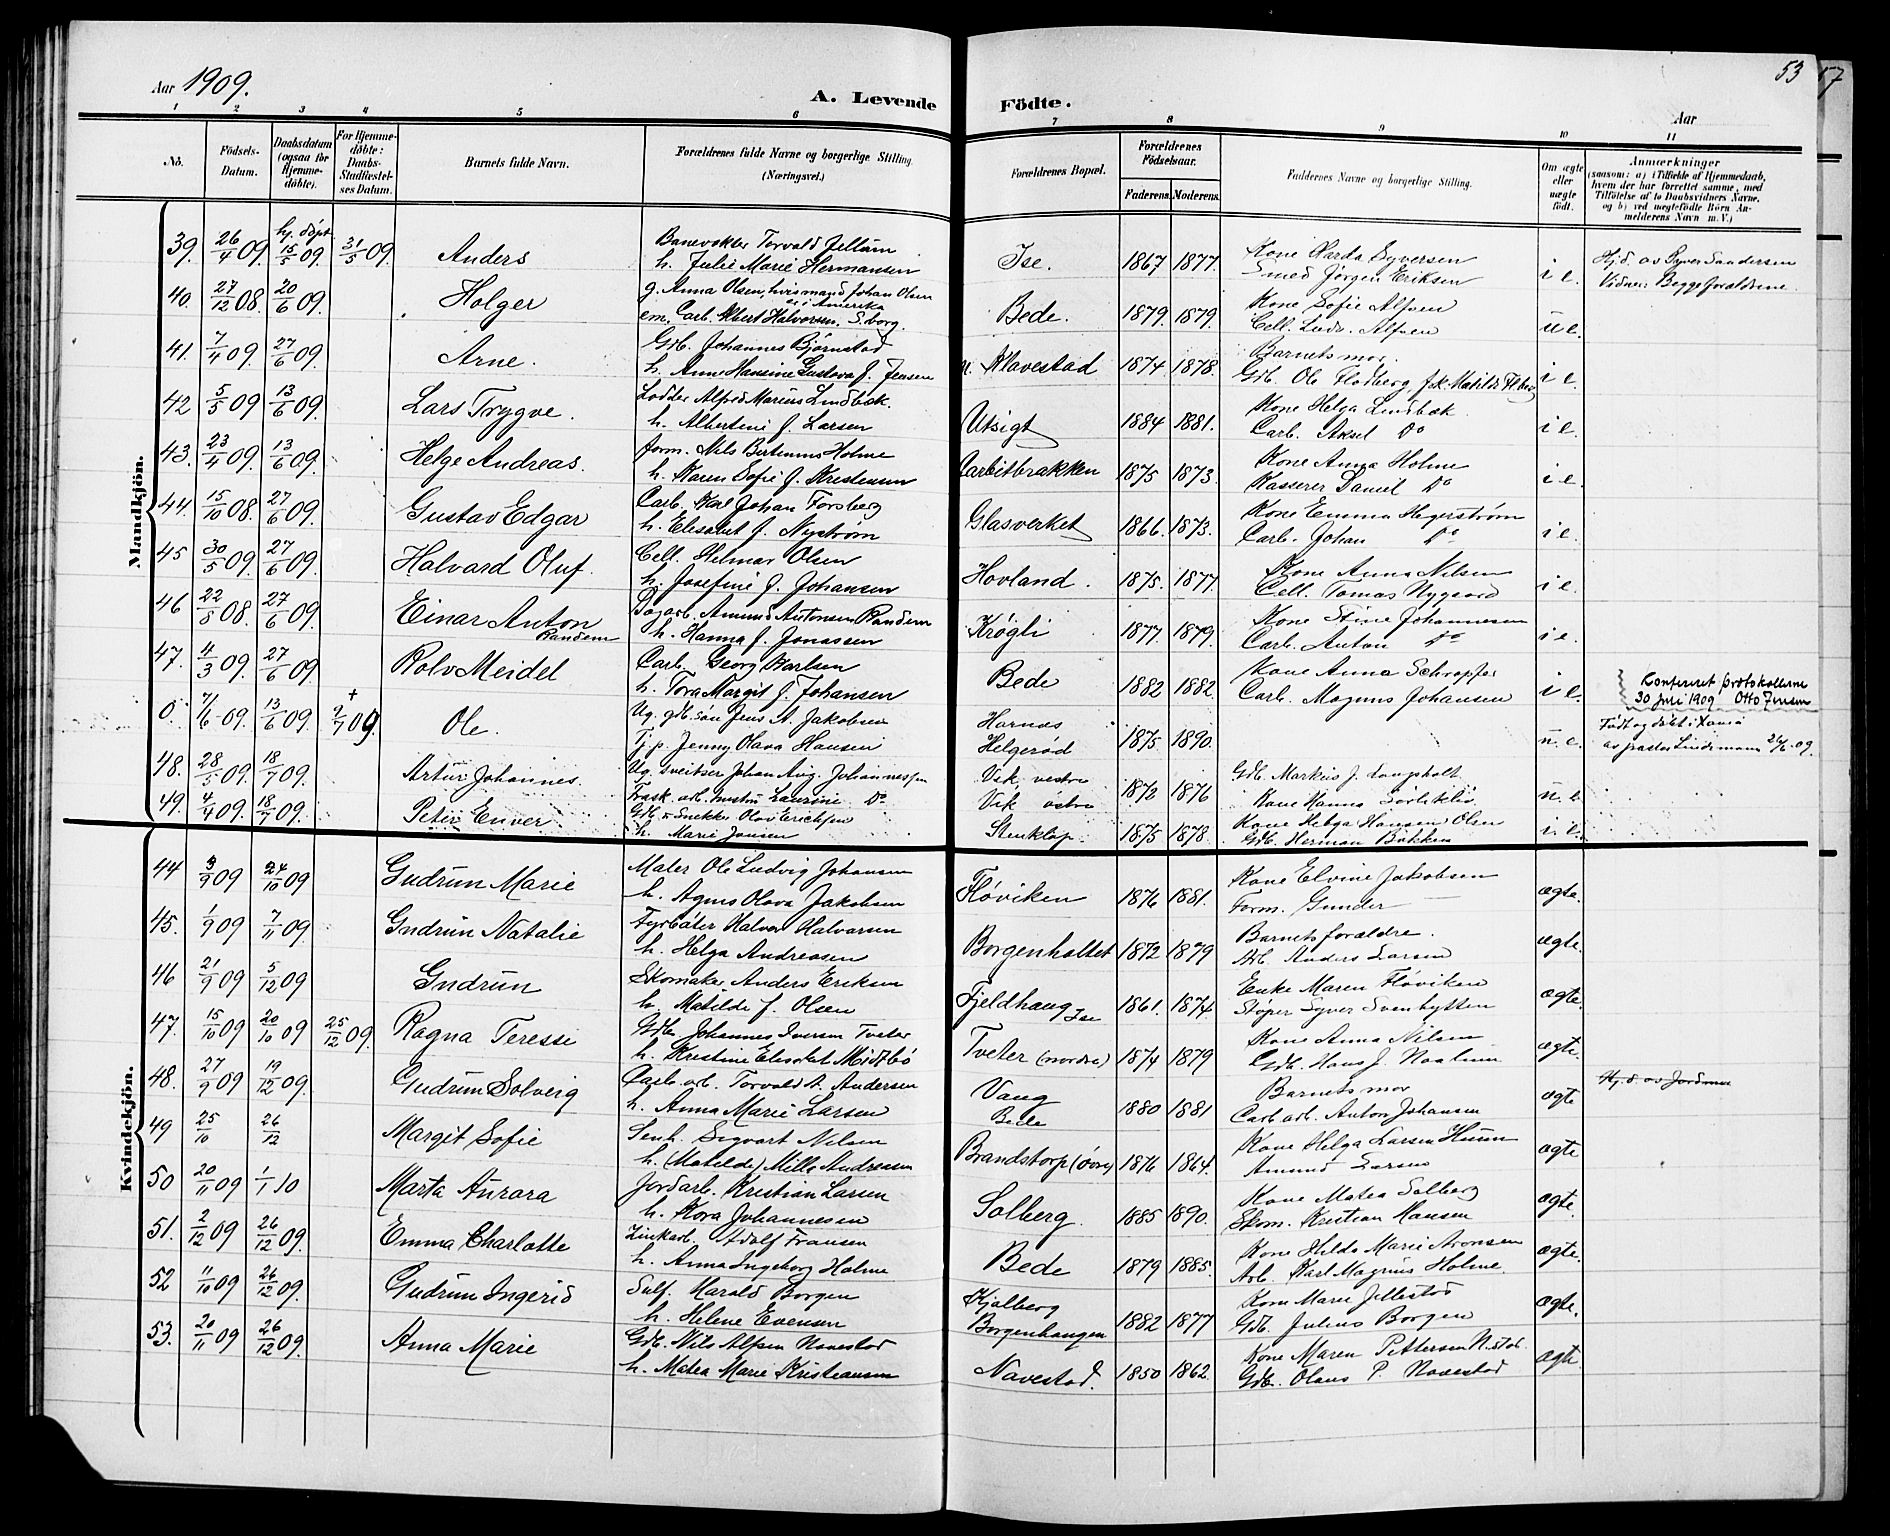 Aar 1909.
A. Levende
Födte.
Aar
53
57
1 2 3 4 5 6 7 8 9 10 11
No.
Födsels-Datum.
Daabsdatum (ogsaa for Hjemme-döbte).
For Hjemme-döbte: Daabs-Stadfæstel-ses Datum.
Barnets fulde Navn.
Forældrenes fulde Navne og borgerlige Stilling. (Næringsvei.)
Forældrenes Bopæl.
Forældrenes Födselsaar.
Faderens. Moderens.
Faddernes Navne og borgerlige Stilling.
Om ægte eller uægte födt.
Anmærkninger (saasom: a) i Tilfælde af Hjemmedaab, hvem der har forrettet samme, med Tilföielse af to Daabsvidners Navne, og b) ved uægtefödte Börn An-melderens Navn m. V.)
Mandkjön.
39. 26/4 09. hj. döpt 15/5 09. 31/5 09. Anders Banevokter Torvald Jellum Ise. 1867 1877. Kone Harda Syversen i e. Hj.d. av Syver Gundersen
h. Julie Marie Hermansen Smed Jørgen Eriksen Vidner: Begge forældrene.
40. 27/12 08. 20/6 09. Holger g. Anna Olsen, hvis mand Johan Olsen er i Amerika Bede. 1879. 1879. Kone Sofie Alfsen u e.
em. Carb. Albert Halvorsen. S.borg. Cell. Ludv. Alfsen
41. 7/4 09. 27/6 09. Arne. Gdb. Johannes Bjørnstad n. Klavestad 1874 1878. Barnets mor. i e.
h. Anne Hansine Gustava f. Jensen Gdb. Ole Flodberg, fk. Matilde Flbrg
42 5/5 09 13/6 09. Lars Trygve. Lodder Alfred Marius Lindbæk. Utsigt 1884 1881. Kone Helga Lindbæk. i e.
h. Albertine f. Larsen Carb. Aksel Do
43. 23/4 09. 13/6 09. Helge Andreas. form. Nils Bertinius Holme Carbitbrakken 1875 1873. Kone Anna Holme i e.
h. Karen Sofie f. Kristensen Kasserer Daniel Do
44. 15/10 08. 27/6 09. Gustav Edgar Carb. Karl Johan Forsberg Glasverket 1866. 1873. Kone Emma Hegerstrøm i e.
h. Elisabet f. Nystrøm Carb. Johan Do
45 30/5 09. 27/6 09. Halvard Oluf. Cell. Helmar Olsen Hovland. 1875. 1877 Kone Anna Nilsen i e.
h. Josefine f. Johansen Cell. Tomas Nygaard
46 22/8 08. 27/6 09. Einar Anton Randem Dagarb. Amund Antonsen Randem Krøgli 1877. 1879. Kone Stine Johannesen i e.
h. Hanna f. Jonassen Carb. Anton Do
47. 4/3 09. 27/6 09. Rolv Meidel Carb. Georg Karlsen Bede 1882 1882. Kone Anna Schrøpfer i e.
h. Tora Margit f. Johansen Carb. Magnus Johansen
Konfereret protokollerne 30 juli 1909 Otto Jensen
0. 7/6 09. 13/6 09. + 2/7 09. Ole. Ug. gdb. søn Jens A. Jakobsen Hornæs 1875 1890. u. e. Født og døbt i
Tj. p. Jenny Olava Hansen Helgerød av pastor Lindemann 26/6 09.
48. 28/5 09. 18/7 09. Artur Johannes. Ug. sveitser Johan Aug. Johannessen Vik, vestre 1872 1876 Gdb. Markus J. Langholt u. e.
Frask. arb. hustru Laurine Do Vik østre Kone Hanna
49. 4/4 09. 18/7 09. Peter Enver Gdb. & Snekker Olav Erichsen Stenkløp. 1875 1878. Kone Helga Hansen Olsen i e.
h. Marie Jensen Gdb. Herman Bakken
Kvindekjön.
44 3/9 09 24/10 09 Gudrun Marie Maler Ole Ludvig Johansen Fløviken 1876 1881. Kone Elvine Jakobsen ægte.
h. Agnes Olava Jakobsen Form. Gunder —
45. 1/9 09 7/11 09. Gudrun Natalie Fyrbøter Halvor Halvorsen Borgenholtet 1872 1879 Barnets forældre. ægte.
h. Helga Andreasen Arb. Anders Larsen
46 21/9 09 5/12 09 Gudrun Skomaker Anders Eriksen Fjeldhaug Ise 1861. 1874. Enke Maren Fløviken ægte.
h. Matilde f. Olsen Støper Syver Svenhytten
47. 15/10 09 20/10 09 25/12 09. Ragna Teresie Gdb Johannes Iversen Tveter Tveter (nordre) 1874 1879 Kone Anna Nilsen ægte.
h. Kristine Elisabet Midtbø Gdb. Hans J. Navestad
48. 27/9 09 19/12 09. Gudrun Solveig Carb. arb. Torvald A. Andersen Vang 1880 1881 Barnets mor ægte Hj. d. av Jordmor
h. Anna Marie Larsen Bede Carb arb. Anton Johansen
49 25/10 26/12 Margit Sofie Senh. Sigvart Nilsen Brandstorp (övre) 1876 1864. Kone Helga Larsen Huun ægte.
h. (Matilde) Milla Andresen Amund Larsen
50 20/11 09 1/1 10 Marta Aurora Jordarb. Kristian Larsen Solberg. 1885 1890. Kone Matea Solberg ægte.
h. Kora Johannesen Skom. Kristian Hansen
51. 2/12 09 26/12 09. Emma Charlotte Zinkarb. Adolf Fransen Bede 1879 1885. Kone Hilda Marie Aronsen ægte.
h. Anna Ingeborg Holme Arb. Karl Magnus Holme.
52 11/10 09 26/12 09. Gudrun Ingerid Sulf. Harald Borgen Kjølberg 1882 1877 Kone Marie Jellestad ægte.
h. Helene Evensen Borgenhaugen Gdb. Julius Borgen
53. 20/11 09 26/12 09. Anna Marie Gdb. Nils Alfsen Navestad Navestad. 1850 1862. Kone Maren Pettersen N.stad. ægte.
h. Matea Marie Kristiansen Gdb. Olaus P. Navestad